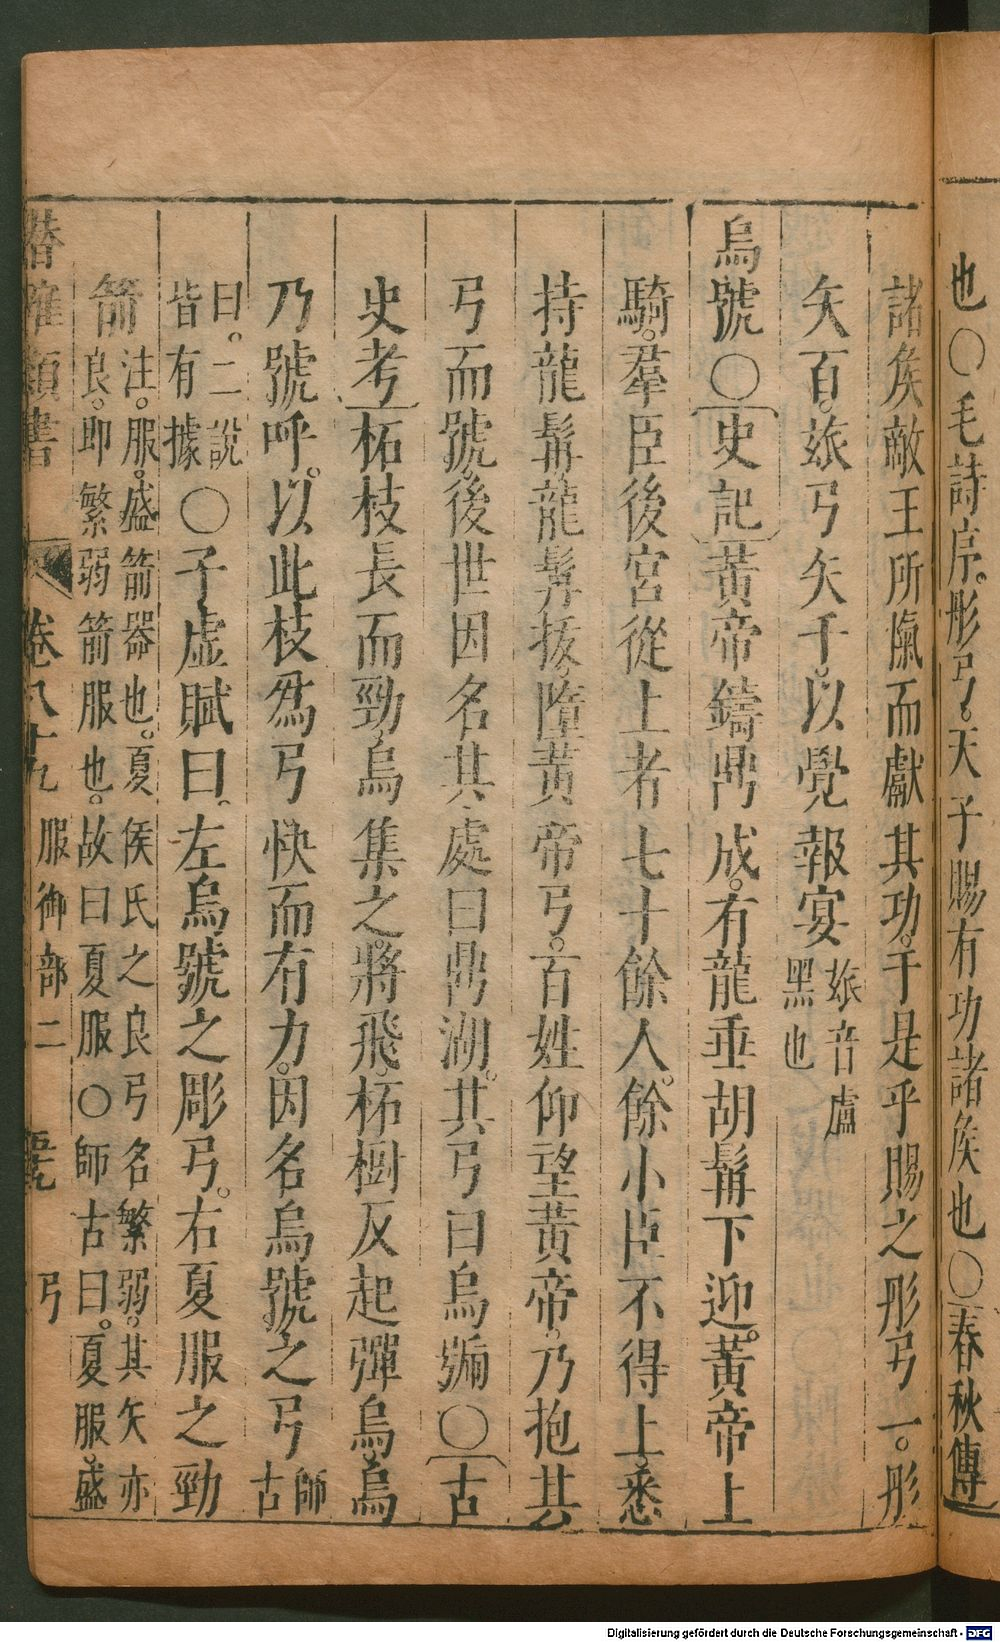 也○毛詩序。彤弓。天子賜有功諸矦也○春秋傳
諸矦敵王所愾而獻其功。于是乎賜之彤弓一。彤
矢百。玈弓矢千。以覺報宴玈音盧
黑也
烏號○史記黃帝鑄鼎成。有龍垂胡髯下迎。黃帝上
騎。羣臣後宮從上者七十餘人。餘小臣不得上。悉
持龍髯。龍髯拔。墮黃帝弓。百姓仰望黃帝。乃抱其
弓而號。後世因名其處曰鼎湖。其弓曰烏號○古
史考柘枝長而勁。烏集之。將飛。柘樹反起彈烏。烏
乃號呼。以此枝爲弓快而有力。因名烏號之弓師
古
曰。二說
皆有據○子虛賦曰。左烏號之彫弓。右夏服之勁
箭注。服。盛箭器也。夏侯氏之良弓名繁弱。其矢亦
良。即繁弱箭服也。故曰夏服○師古曰。夏服。盛
潛確類書 卷八十九 服御部二 弓
Digitalisierung gefördert durch die Deutsche Forschungsgemeinschaft - DFG